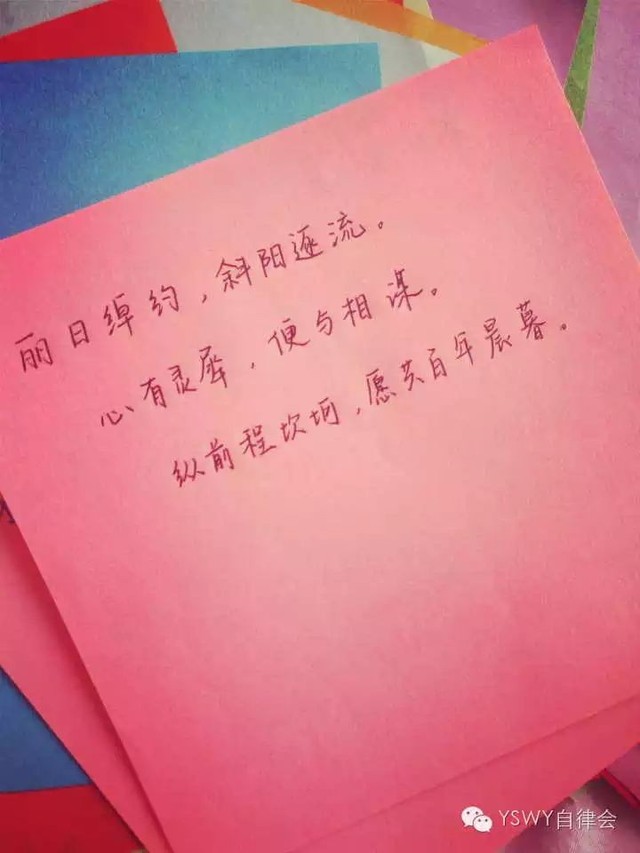 丽日绰约，斜阳逐流。
心有灵犀，便与相谋。
纵前程坎坷，愿共百年晨暮。
YSWY自律会